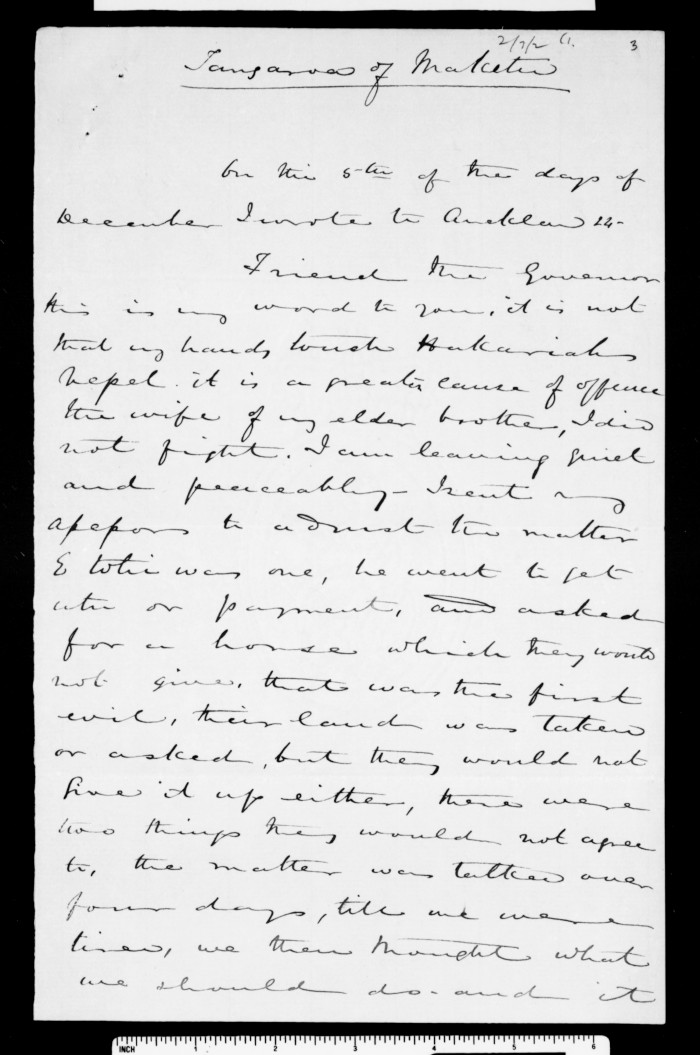 2/7/2 G.
3
Tangaroa of Maketu
On the 5th of the days of
December I wrote to Aucklan
Friend the Governor
this is my word to you, it is not
that my hands touch
it is a greater cause of offence
the wife of my elder brother, I did
not fight. I am leaving quiet
and peaceably - I sent my
to adjust the matter
E was one, he went to get
utu or payment, and asked
for a horse which they would
not give, that was the first
evil, their land was taken
or asked, but they would not
give it up either, there were
two things they would not agree
to, the matter was talked over
four days, till we were
tired, we then thought what
we should do - and it
INCH 1 2 3 4 5 6